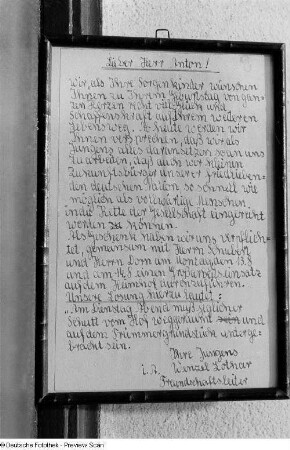 Lieber Herr Anton!
Wir, als Ihre Sorgenkinder wünschen
Ihnen zu Ihrem Geburtstag von gan-
zen Herzen recht viel Glück und
Schaffenskraft auf Ihrem weiteren
Lebensweg. Ab heute werden wir
Ihnen versprechen, daß wir als
Jungens alles daransetzen, so an uns
zu arbeiten, daß auch wir kleine
Zukunftsbürger unserer friedlieben-
den deutschen Nation so schnell wie
möglich als vollwertige Menschen
in die Kette der Gesellschaft eingereiht
werden zu können.
Als Geschenk haben wir uns verpflich-
tet, gemeinsam mit Herrn
und Herrn Dorn am Montag den 13.8
und am 14.8 einen Großarbeitseinsatz
auf dem Heimhof durchzuführen.
Unsere Losung hierzu lautet:
"Am Dienstag Abend muß sämtlicher
Schutt vom Hof weggeräumt und
auf dem Trümmergrundstück unterge-
bracht sein.
Ihre Jungens
i.A. Wenzel Lothar
Freundschaftsleiter
©Deutsche Fotothek - Preview Scan